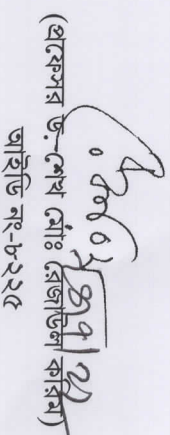 (প্রফেসর ড.-শেখ মোঃ রেজাউল করিম)
আইডি নং-৮২২৫